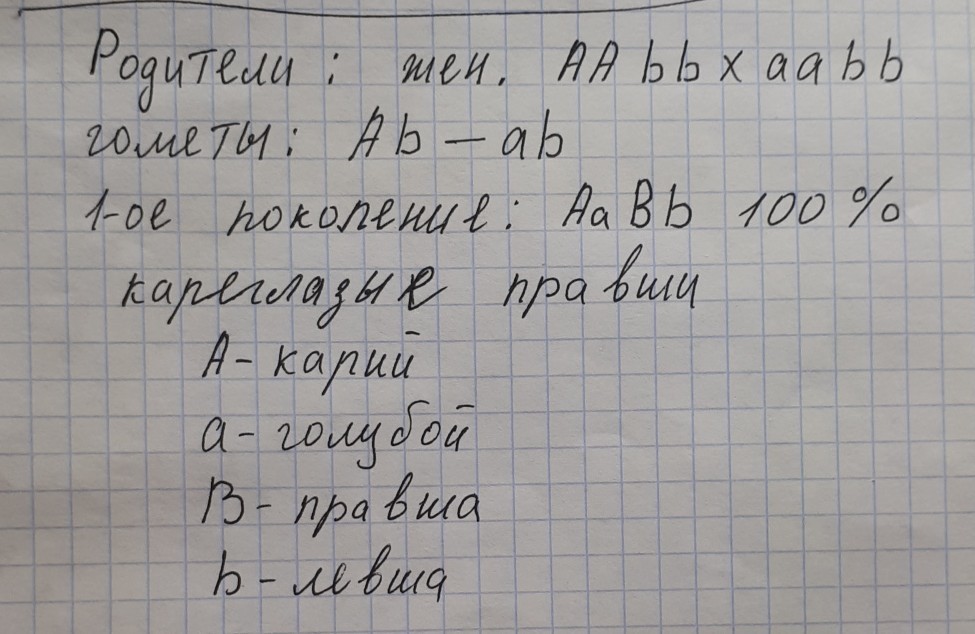 Родители: жен. AAbb x aabb
гометы: Ab – ab
1-ое поколение: AaBb 100%
кареглазые правши
A - карий
a - голубой
B - правша
b - левша